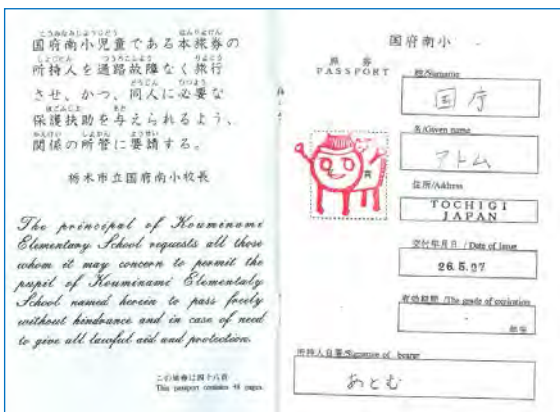 国府南小児童である本旅券の
所持人を通路故障なく旅行
させ、かつ、同人に必要な
保護扶助を与えられるよう、
関係の所管に要請する。
栃木市立国府南小校長
The principal of Kouminami
Elementary School requests all those
whom it may concern to permit the
pupil of Kouminami Elementaly
School named herein to pass freely
without hindrance and in case of need
to give all lawful aid and protection.
この旅券は四十八頁
This passport contains 48 pages.
国府南小
旅券
PASSPORT
姓/Surname
国府
名/Given name
アトム
住所/Address
TOCHIGI
JAPAN
交付年月日 / Date of Issue
26.5.07
有効期間 /The grade of expiration
所持人自署/Signature of bearer
あとむ